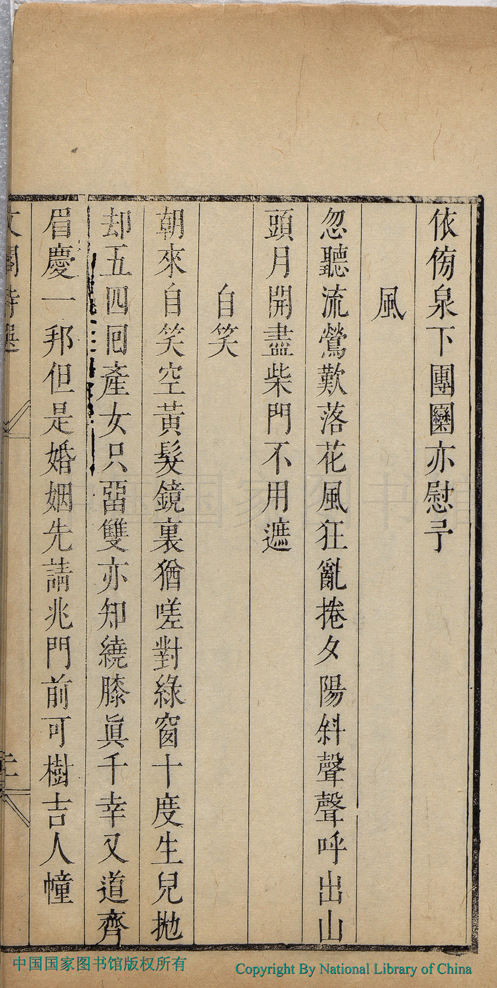 依傍泉下團圞亦慰予
風
忽聽流鶯歎落花風狂亂捲夕陽斜聲聲呼出山
頭月開盡柴門不用遮
自笑
朝來自笑空黃髮鏡裏猶嗟對綠窗十度生兒拋
却五四囘產女只畱雙亦知繞膝眞千幸又道齊
眉慶一邦但是婚姻先請兆門前可樹吉人幢
中国国家图书馆版权所有
Copyright By National Library of China